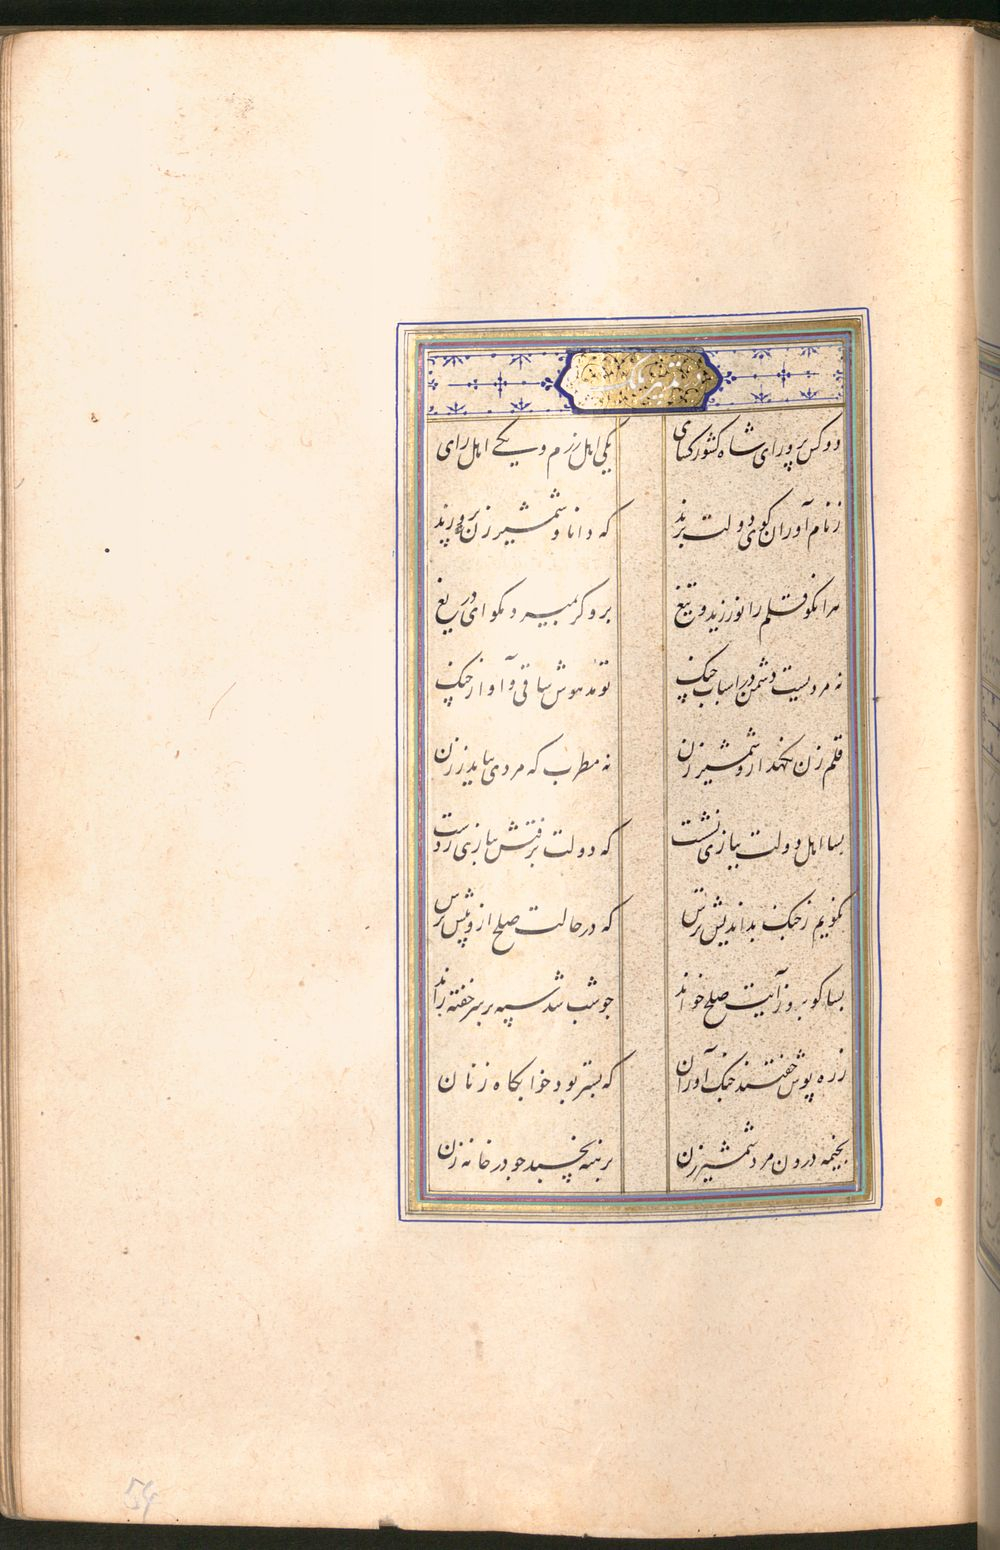 در تدبیر ملک
دو کس پرور ای شاه کشور کشای
یکی اهل رزم و یکی اهل رای
ز نام آوران کوی دولت برند
که دانا و شمشیر زن پرورند
هر انکو قلم را نورزید و تیغ
برو کر بمیرد مکو ای دریغ
نه مردیست دشمن در اسباب جنک
تو مدهوش ساقی و آواز چنک
قلم زن نکهدار و شمشیر زن
نه مطرب که مردی نیاید ز زن
بسا اهل دولت ببازی نشست
که دولت برفتش ببازی ز دست
نکویم ز جنک بداندیش ترس
که در حالت صلح ازو بیش ترس
بسا کو بروز آیت صلح خواند
چو شب شد سپه بر سر خفته راند
زره پوش خفتند جنک آوران
که بستر بود خوابکاه زنان
بخیمه درون مرد شمشیر زن
برهنه نخسبد چو در خانه زن
54